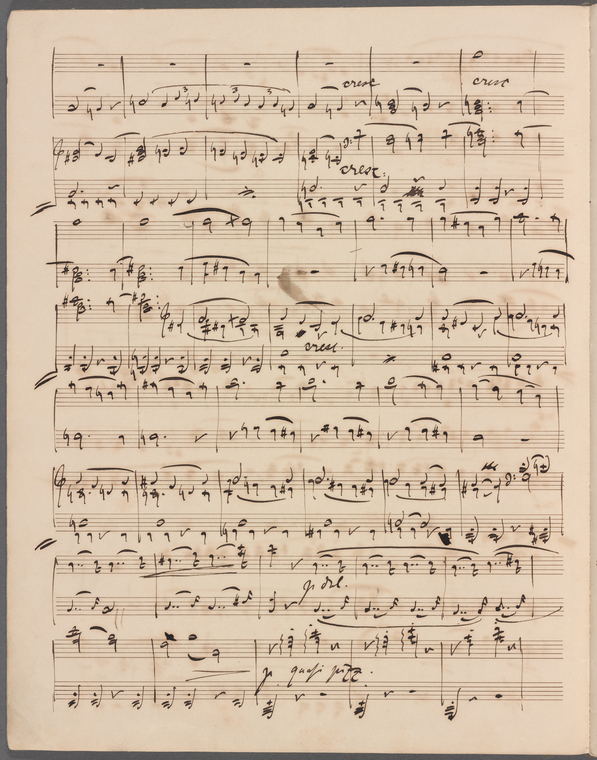 cresc cresc
cresc.
cresc.
p dol.
p. quasi pizz.